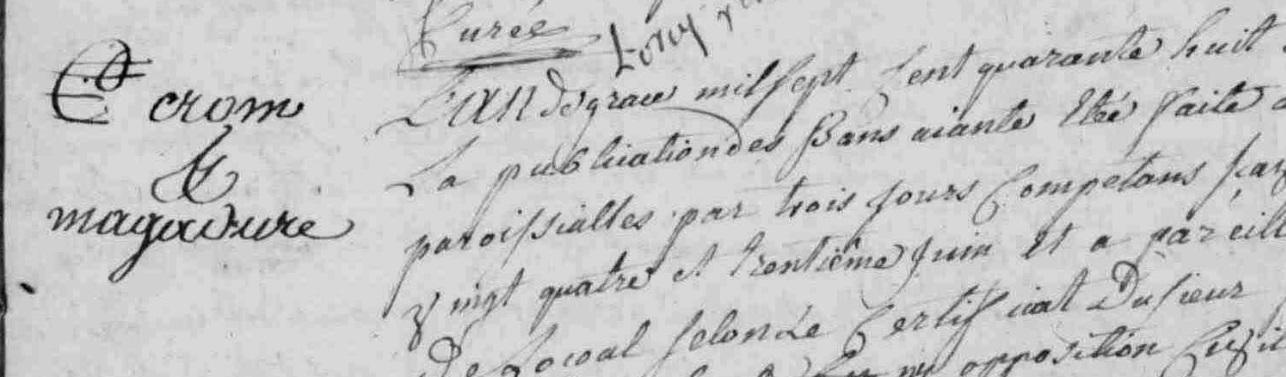 Curée
L'an de grace mil sept Cent quarante huit
La publication des Bans aiante Eteé faite
paroissialles par trois jours Competans
vingt quatre et trentiême juin Et a pareill
De Locoal selon Le Certificat Du sieur
opposition
crom
&
magadure